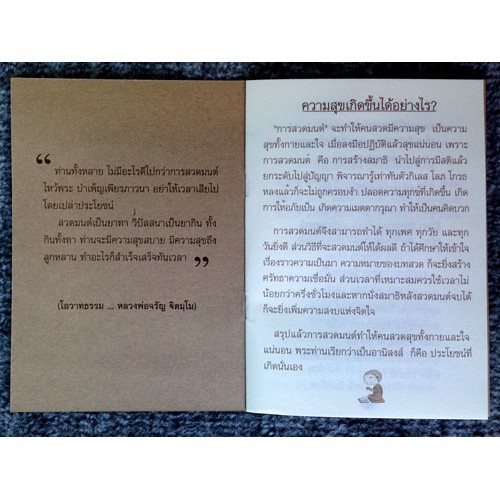 “ ท่านทั้งหลาย ไม่มีอะไรดีไปกว่าการสวดมนต์
ไหว้พระ บำเพ็ญเพียรภาวนา อย่าให้เวลาเสียไป
โดยเปล่าประโยชน์
สวดมนต์เป็นยาทา วิปัสสนาเป็นยากิน ทั้ง
กินทั้งทา ท่านจะมีความสุขสบาย มีความสุขถึง
ลูกหลาน ทำอะไรก็สำเร็จเสร็จทันเวลา ”
(โอวาทธรรม ... หลวงพ่อจรัญ ฐิตธมฺโม)
ความสุขเกิดขึ้นได้อย่างไร?
"การสวดมนต์" จะทำให้คนสวดมีความสุข เป็นความ
สุขทั้งกายและใจ เมื่อลงมือปฏิบัติแล้วสุขแน่นอน เพราะ
การสวดมนต์ คือ การสร้างสมาธิ นำไปสู่การมีสติแล้ว
ยกระดับไปสู่ปัญญา พิจารณารู้เท่าทันตัวกิเลส โลภ โกรธ
หลงแล้วก็จะไม่ถูกครอบงำ ปลอดความทุกข์ที่เกิดขึ้น เกิด
การให้อภัยเป็น เกิดความเมตตากรุณา ทำให้เป็นคนคิดบวก
การสวดมนต์จึงสามารถทำได้ ทุกเพศ ทุกวัย และทุก
วันยิ่งดี ส่วนวิธีที่จะสวดมนต์ให้ได้ผลดี ถ้าได้ศึกษาให้เข้าใจ
เรื่องราวความเป็นมา ความหมายของบทสวด ก็จะยิ่งสร้าง
ศรัทธาความเชื่อมั่น ส่วนเวลาที่เหมาะสมควรใช้เวลาไม่
น้อยกว่าครึ่งชั่วโมงและหากนั่งสมาธิหลังสวดมนต์จบได้
ก็จะยิ่งเพิ่มความสงบแห่งจิตใจ
สรุปแล้วการสวดมนต์ทำให้คนสวดสุขทั้งกายและใจ
แน่นอน พระท่านเรียกว่าเป็นอานิสงส์ ก็คือ ประโยชน์ที่
เกิดนั่นเอง